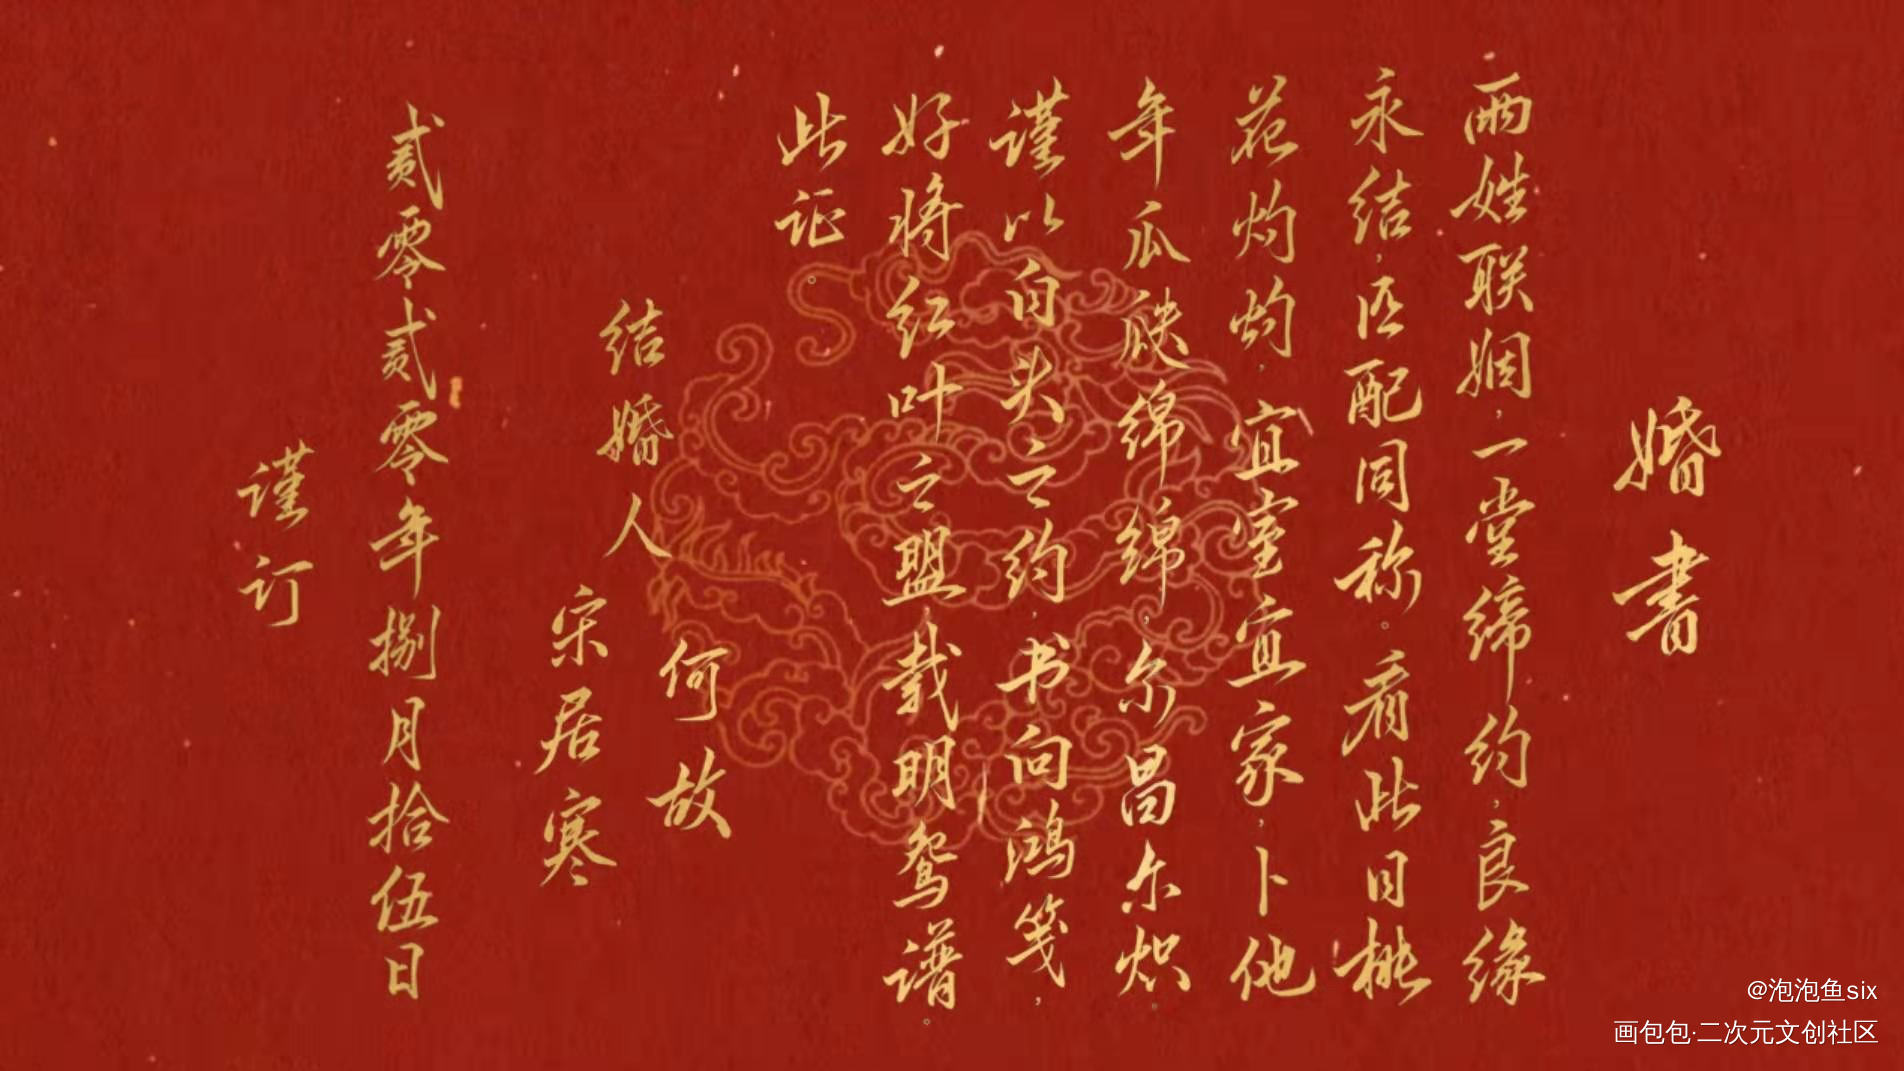 婚書
両姓联姻，一堂缔约，良缘
永结，匹配同称。看此日桃
花灼灼，宜室宜家，卜他
年瓜瓞绵绵，尔昌尔炽。
谨以白头之约，书向鸿笺，
好将红叶之盟，载明鸳谱。
此证。
结婚人
何故
宋居寒
贰零贰零年捌月拾伍日
谨订
@泡泡鱼six
画包包·二次元文创社区